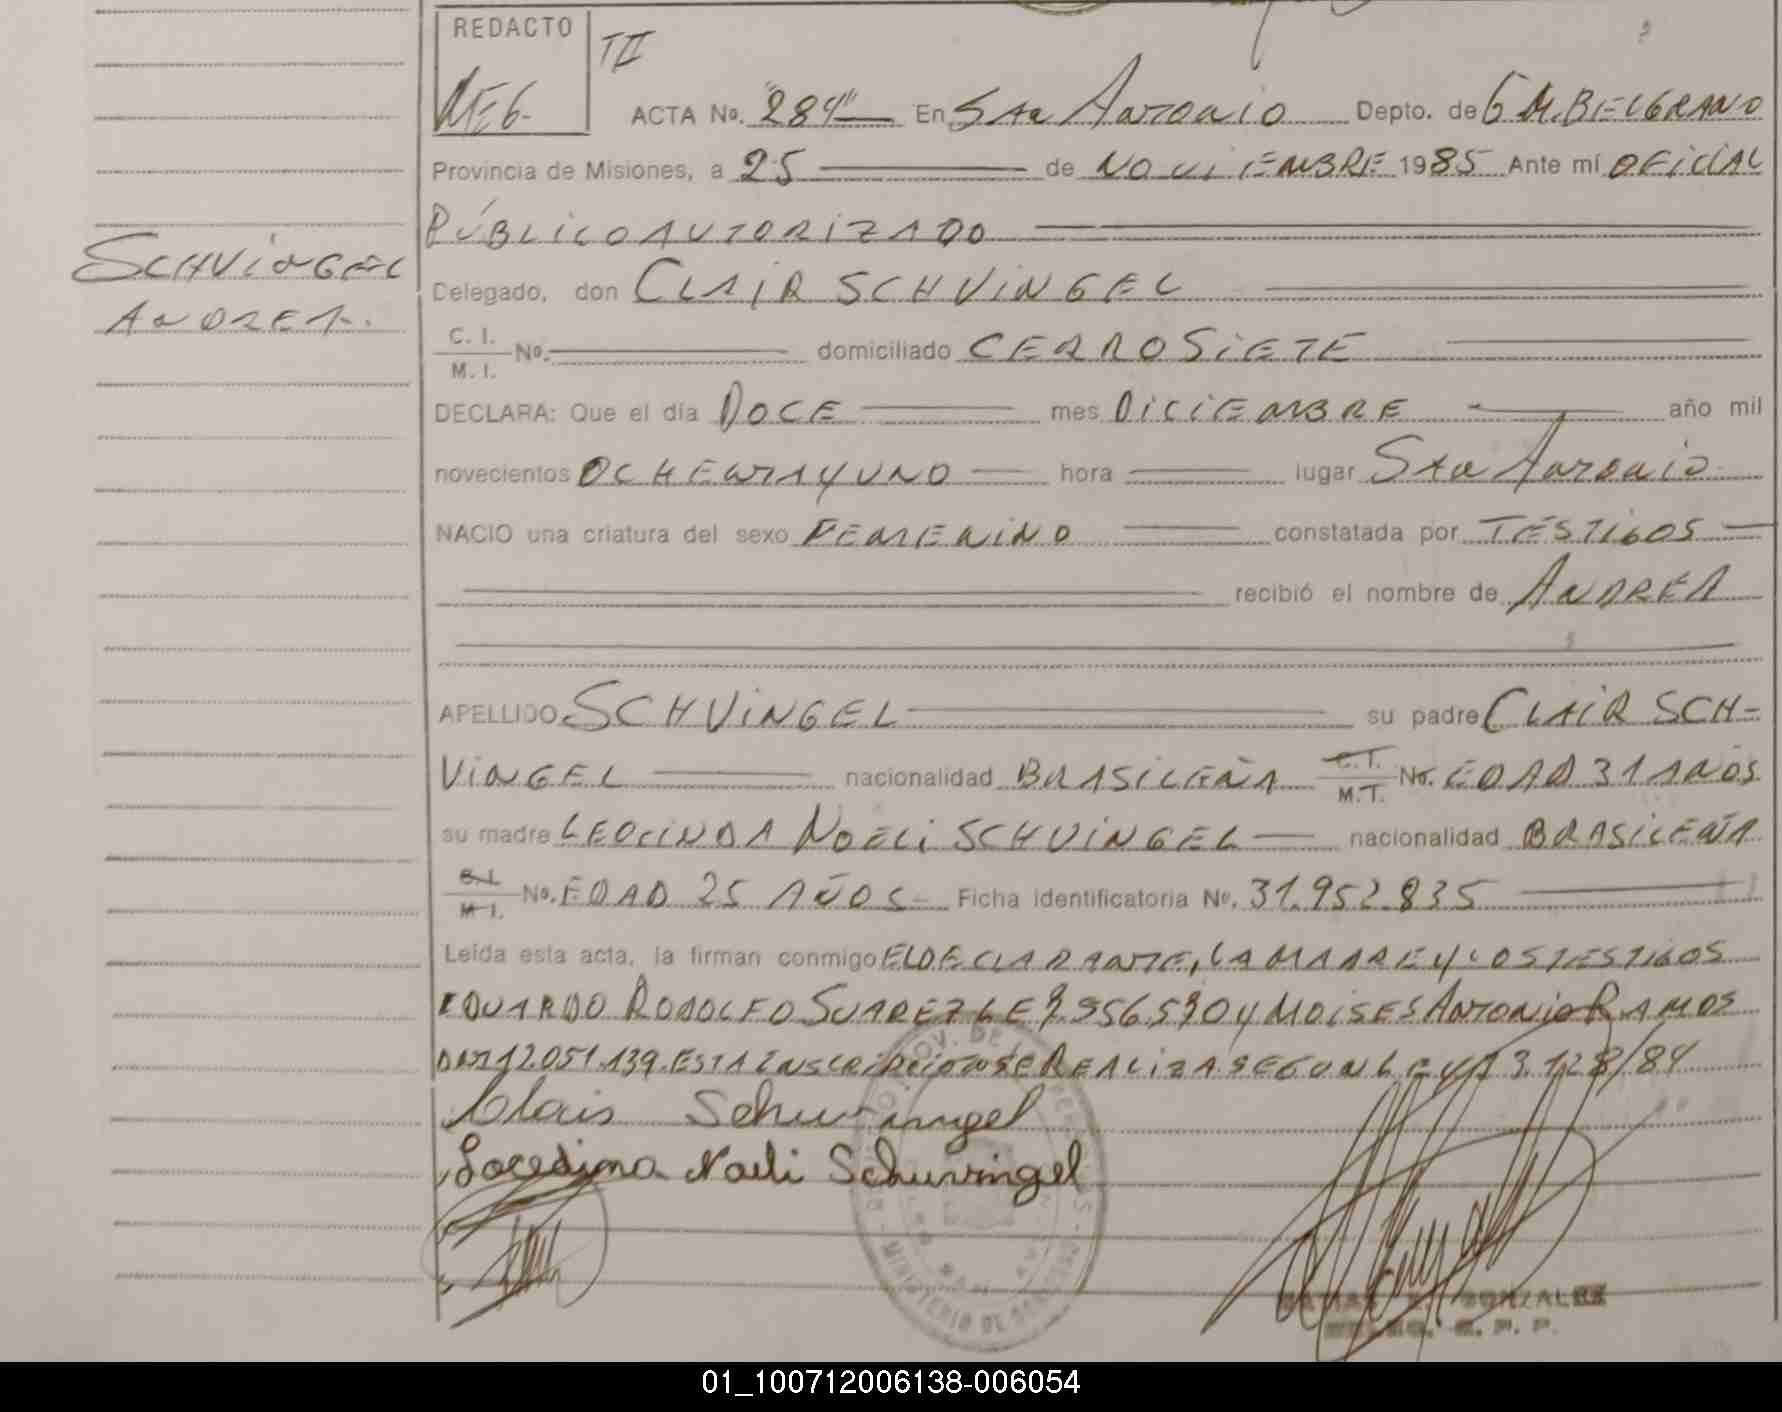 REDACTO
TII
ACTA No. "284" En San Antonio Depto. de G M. BELGRANO
Provincia de Misiones, a 25 de NOVIEMBRE 1985 Ante mí OFICIAL
PÚBLICO AUTORIZADO
SCHVINGEL
Delegado, don CLAIR SCHVINGEL
ANDREA.
C. I.
M. I. No. domiciliado CERRO SIETE
DECLARA: Que el día DOCE mes DICIEMBRE año mil
novecientos OCHENTA Y UNO hora lugar San Antonio
NACIO una criatura del sexo FEMENINO constatada por TESTIGOS
recibió el nombre de ANDREA
APELLIDO SCHVINGEL su padre CLAIR SCH-
VINGEL nacionalidad BRASILEÑA C.T. M.T. No. EDAD 31 AÑOS
su madre LEOCINDA NOELI SCHVINGEL nacionalidad BRASILEÑA
C.I. M I. No. EDAD 25 AÑOS Ficha identificatoria No. 31.952.835
Leída esta acta, la firman conmigo EL DECLARANTE, LA MADRE Y LOS TESTIGOS
EDUARDO RODOLFO SUAREZ LE 7.556.590 Y MOISES ANTONIO RAMOS
DNI 12.051.139. ESTA INSCRIPCION SE REALIZA SEGUN LEY 23.128/84
Clair Schuvingel
Locedina Noeli Schuvingel
GONZALEZ
01_100712006138-006054